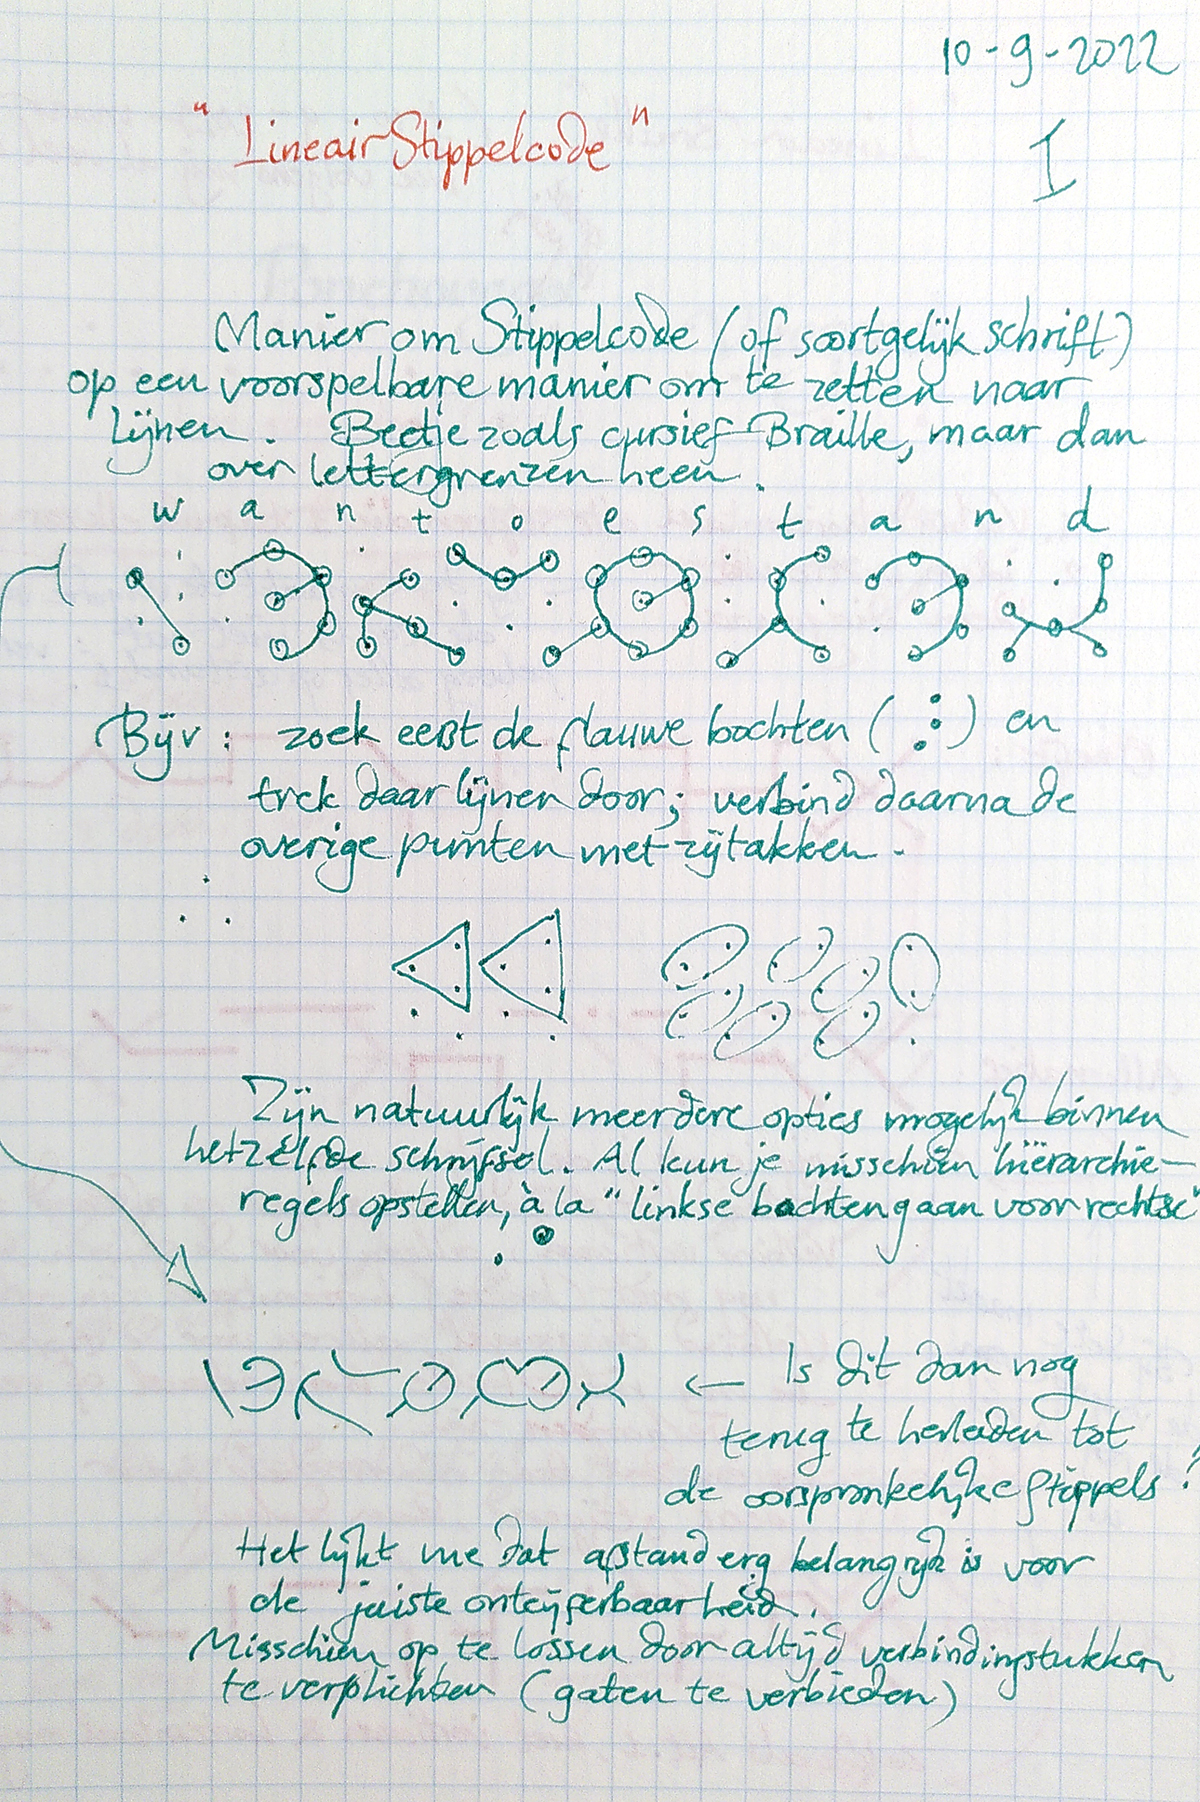 10-9-2022
"LineairStippelcode"
I
Manier om Stippelcode (of soortgelijk schrift)
op een voorspelbare manier om te zetten naar
lijnen. Beetje zoals cursief Braille, maar dan
over lettergrenzen heen.
w a n t o e s t a n d
Bijv: zoek eerst de flauwe bochten ( ) en
trek daar lijnen door; verbind daarna de
overige punten met zijtakken.
Zijn natuurlijk meerdere opties mogelijk binnen
hetzelfde schrijfsel. Al kun je misschien hiërarchie-
regels opstellen, à la "linkse bochten gaan voor rechtse"
← Is dit dan nog
terug te herleiden tot
de oorspronkelijke stippels?
Het lijkt me dat afstand erg belangrijk is voor
de juiste ontcijferbaarheid.
Misschien op te lossen door altijd verbindingstukken
te verplichten (gaten te verbieden)